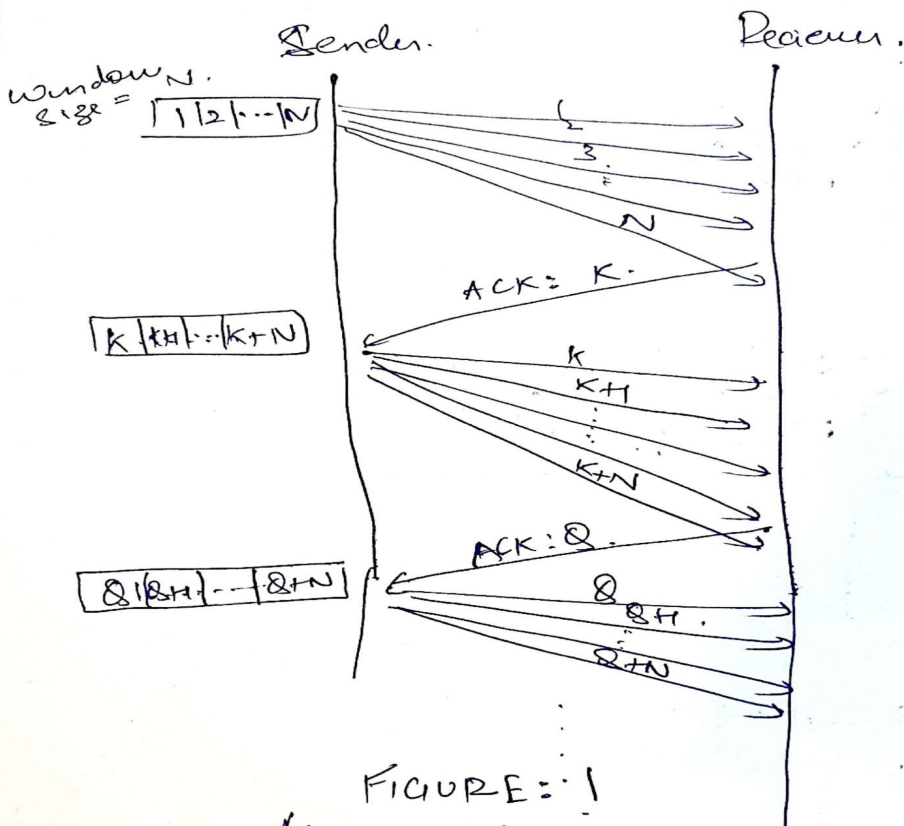 Sender.
Reciever.
window
size = N.
1|2|...|N
1
2
3
N
ACK: K.
K|K+1|...|K+N
K
K+1
K+N
ACK: Q.
Q|Q+1|...|Q+N
Q
Q+1.
Q+N
FIGURE: 1